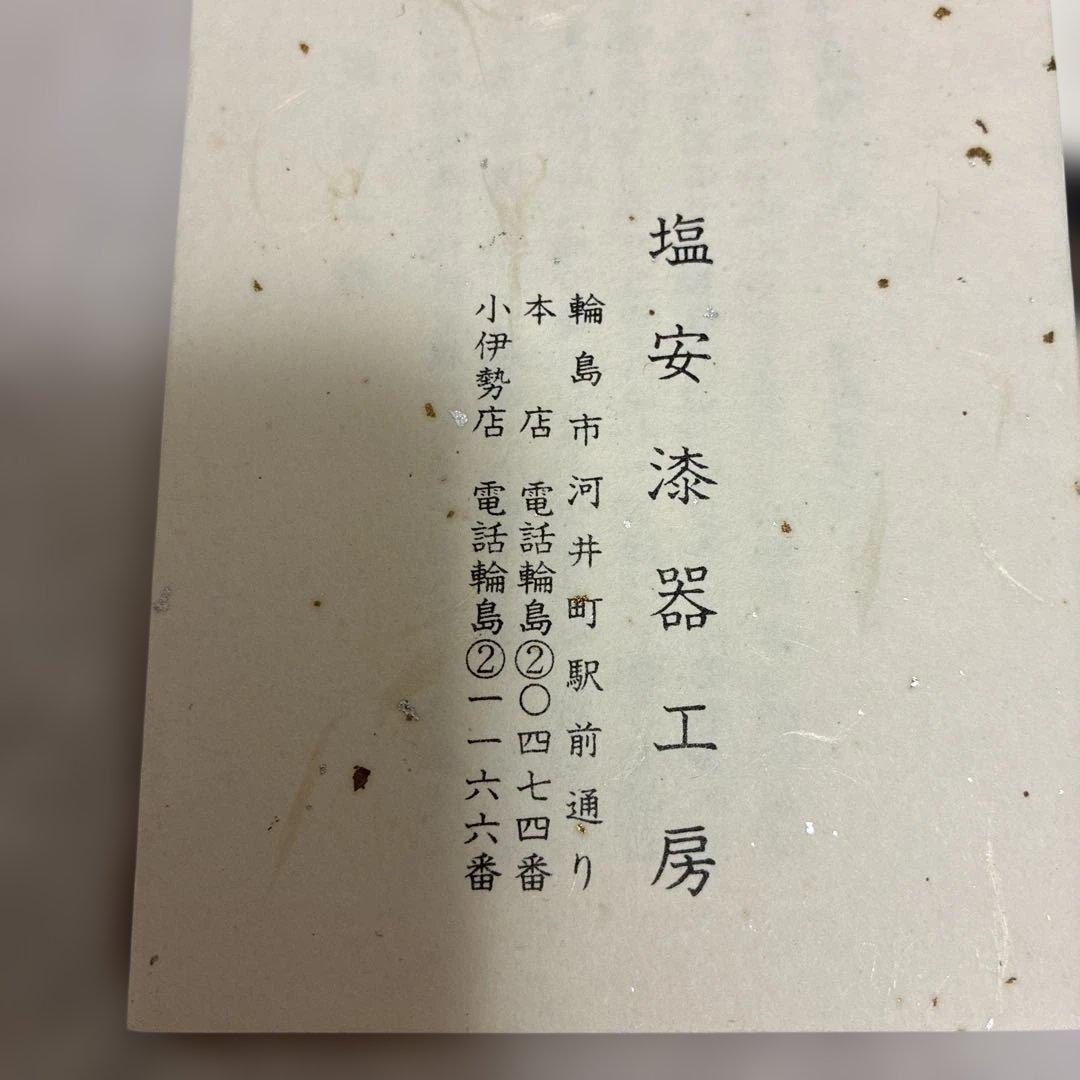 塩安漆器工房
輪島市河井町駅前通り
本店 電話輪島②〇四七四番
小伊勢店 電話輪島②一一六六番